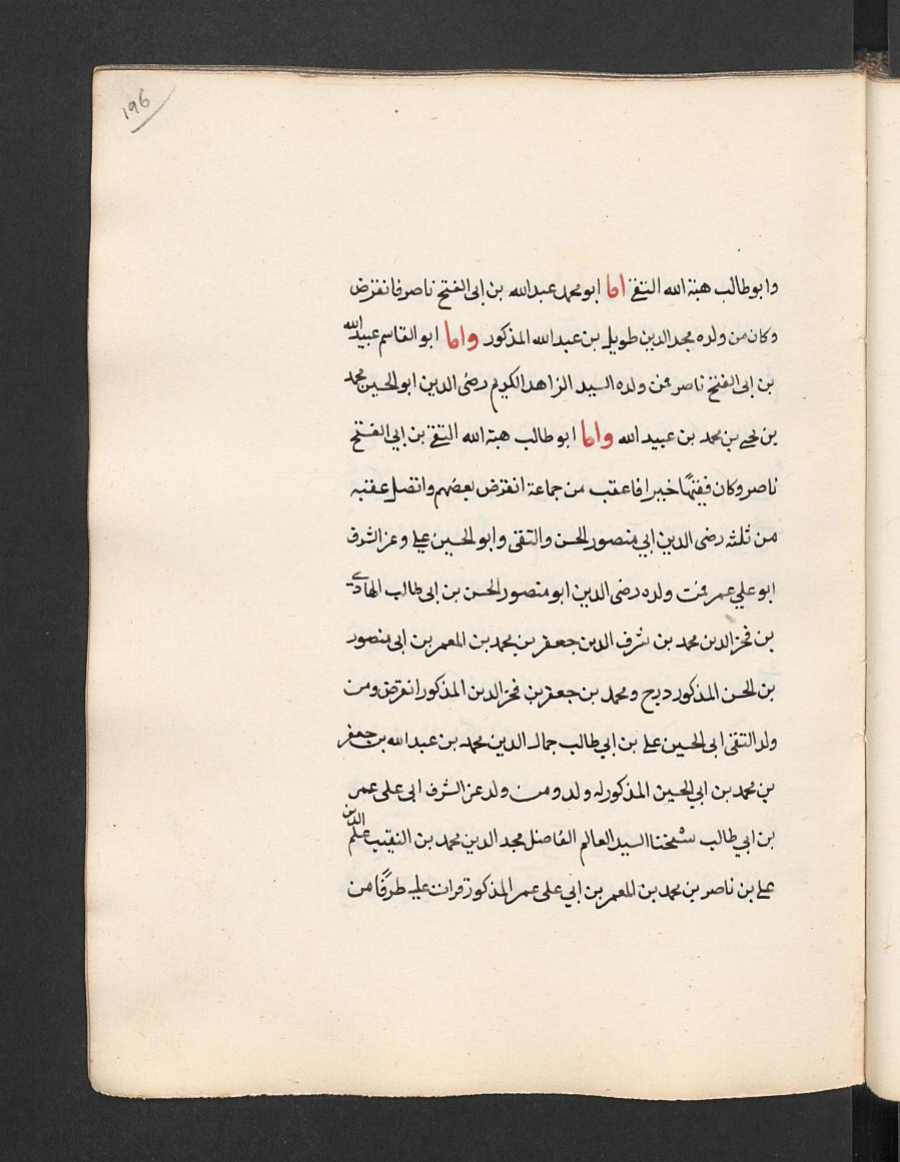 196
وابو طالب هبة الله التقى اما ابو محمد عبدالله بن ابى الفتح ناصر فانقرض
وكان من ولده مجد الدين طويل بن عبدالله المذكور واما ابو القاسم عبيد الله
بن ابى الفتح ناصر فمن ولده السيد الزاهد الكريم رضى الدين ابو الحسين محمد
بن يحيى بن محمد بن عبيد الله واما ابو طالب هبة الله التقى بن ابي الفتح
ناصر وكان فقيهًا خيرا فاعقب من جماعة انقرض بعضهم واتصل عقبه
من ثلثه رضى الدين ابي منصور الحسن والتقى وابو الحسين على وعز الشرف
ابو على عمر فمن ولده رضى الدين ابو منصور الحسن بن ابى طالب الهادى
بن فخر الدين محمد بن شرف الدين جعفر بن محمد بن المعمر بن ابى منصور
بن الحسن المذكور درج ومحمد بن جعفر بن فخر الدين المذكور انقرض ومن
ولد التقى ابى الحسين على بن ابي طالب جمال الدين محمد بن عبدالله بن جعفر
بن محمد بن ابي الحسين المذكور له ولد ومن ولد عز الشرف ابى على عمر
بن ابي طالب شيخنا السيد العالم الفاضل مجد الدين محمد بن النقيب علم الدين
على بن ناصر بن محمد بن المعمر بن ابي على عمر المذكور قرات عليه طرفًا من